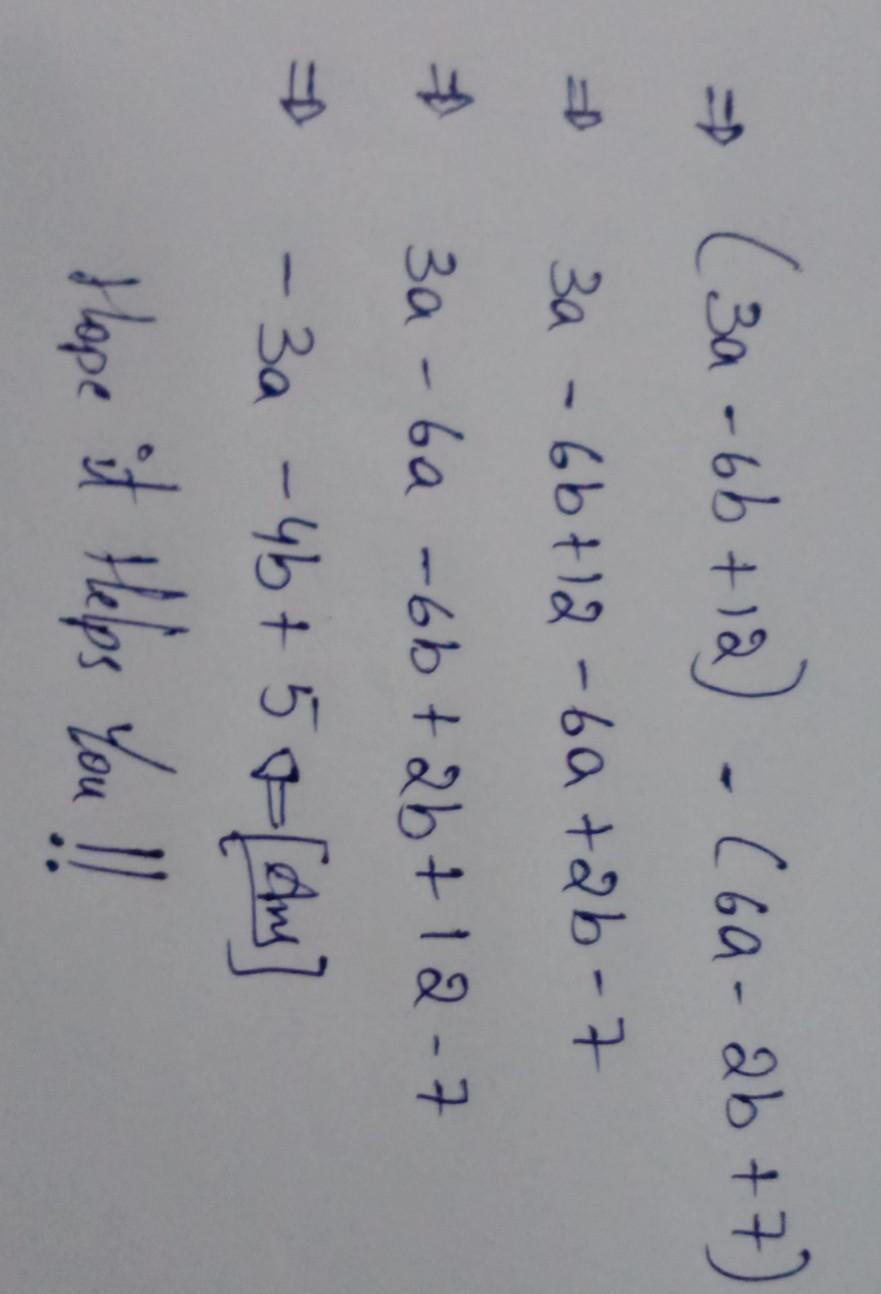 ⇒ (3a - 6b + 12) - (6a - 2b + 7)
⇒ 3a - 6b + 12 - 6a + 2b - 7
⇒ 3a - 6a - 6b + 2b + 12 - 7
⇒ - 3a - 4b + 5 ⇐ [Ans]
Hope it Helps You !!